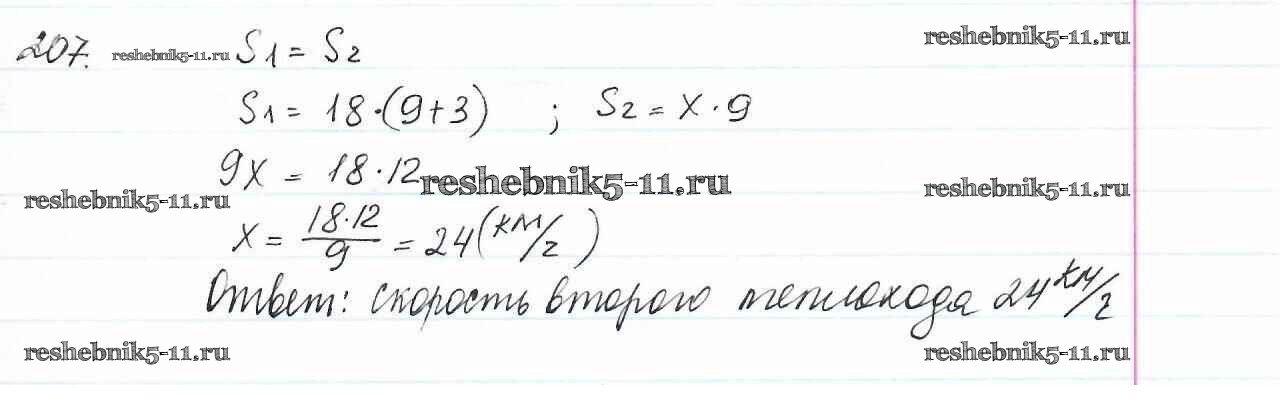 207. reshebnik5-11.ru S1 = S2 reshebnik5-11.ru
S1 = 18·(9+3) ; S2 = x·9
9x = 18·12 reshebnik5-11.ru reshebnik5-11.ru
reshebnik5-11.ru
x = 18·12/9 = 24 (км/ч)
Ответ: скорость второго теплохода 24 км/ч
reshebnik5-11.ru reshebnik5-11.ru